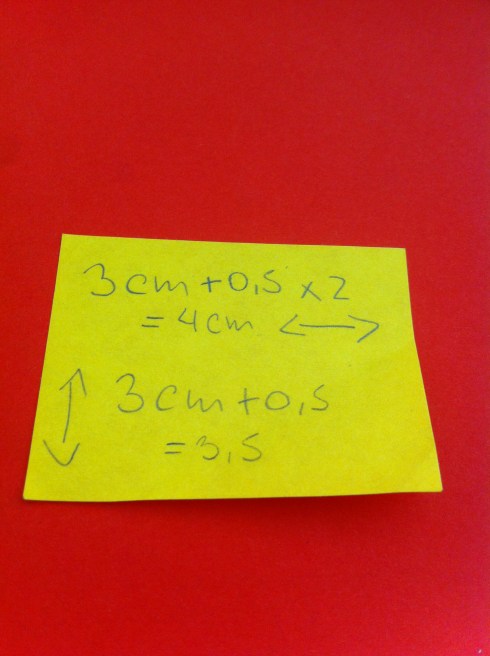 3cm+0,5 x2
=4cm <->
3cm+0,5
=3,5